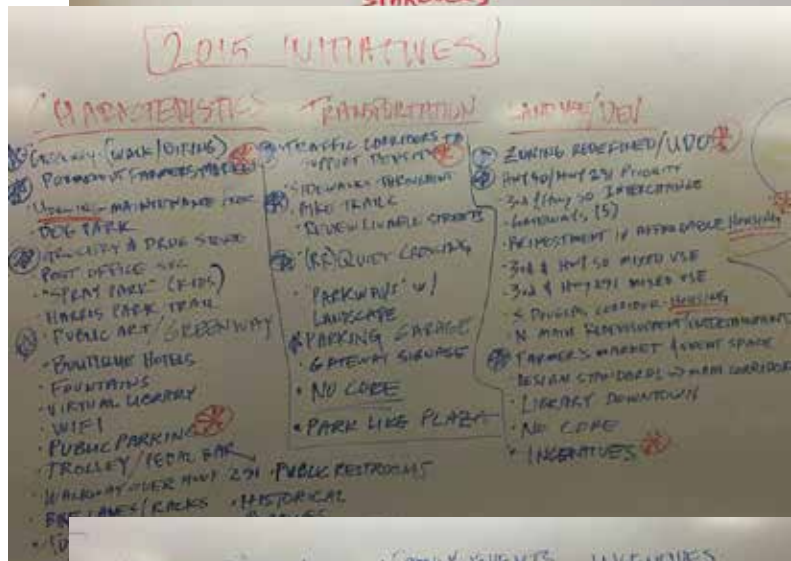 2015 INITIATIVES
CHARACTERISTICS
GROCERY (WALK/DINING)
PERMANENT FARMERS
HOUSING - MAINTENANCE
DOG PARK
GROCERY & DRUG STORE
POST OFFICE SVC
• "SPRAY PARK" (KIDS)
• HARRIS PARK TRAIL
• PUBLIC ART/GREENWAY
• BOUTIQUE HOTELS
• FOUNTAINS
• VIRTUAL LIBRARY
• WIFI
• PUBLIC PARKING
• TROLLEY/PEDAL BAR
• WALKWAY OVER HWY 291
• BIKE LANES/RACKS
• PUBLIC RESTROOMS
• HISTORICAL
TRANSPORTATION
TRAFFIC CORRIDORS TO
SUPPORT DENSITY
SIDEWALKS THROUGHOUT
BIKE TRAILS
• REVIEW LIVABLE STREETS
(RR) QUIET CROSSING
• "PARKWAYS" W/
LANDSCAPE
PARKING GARAGE
• GATEWAY SIGNAGE
• NO CORE
• PARK LIKE PLAZA
LAND USE/DEV
ZONING REDEFINED/UDO
HWY 50/HWY 291 PRIORITY
• 3rd/HWY 50 INTERCHANGE
• GATEWAYS (5)
• REINVESTMENT IN AFFORDABLE HOUSING
• 3rd & HWY 50 MIXED USE
• 3rd & HWY 291 MIXED USE
• S DOUGLAS CORRIDOR - HOUSING
• N. MAIN REDEVELOPMENT/ENTERTAINMENT
FARMER'S MARKET & EVENT SPACE
• DESIGN STANDARDS → MAIN CORRIDOR
• LIBRARY DOWNTOWN
• NO CORE
• INCENTIVES
EVENTS INCENTIVES